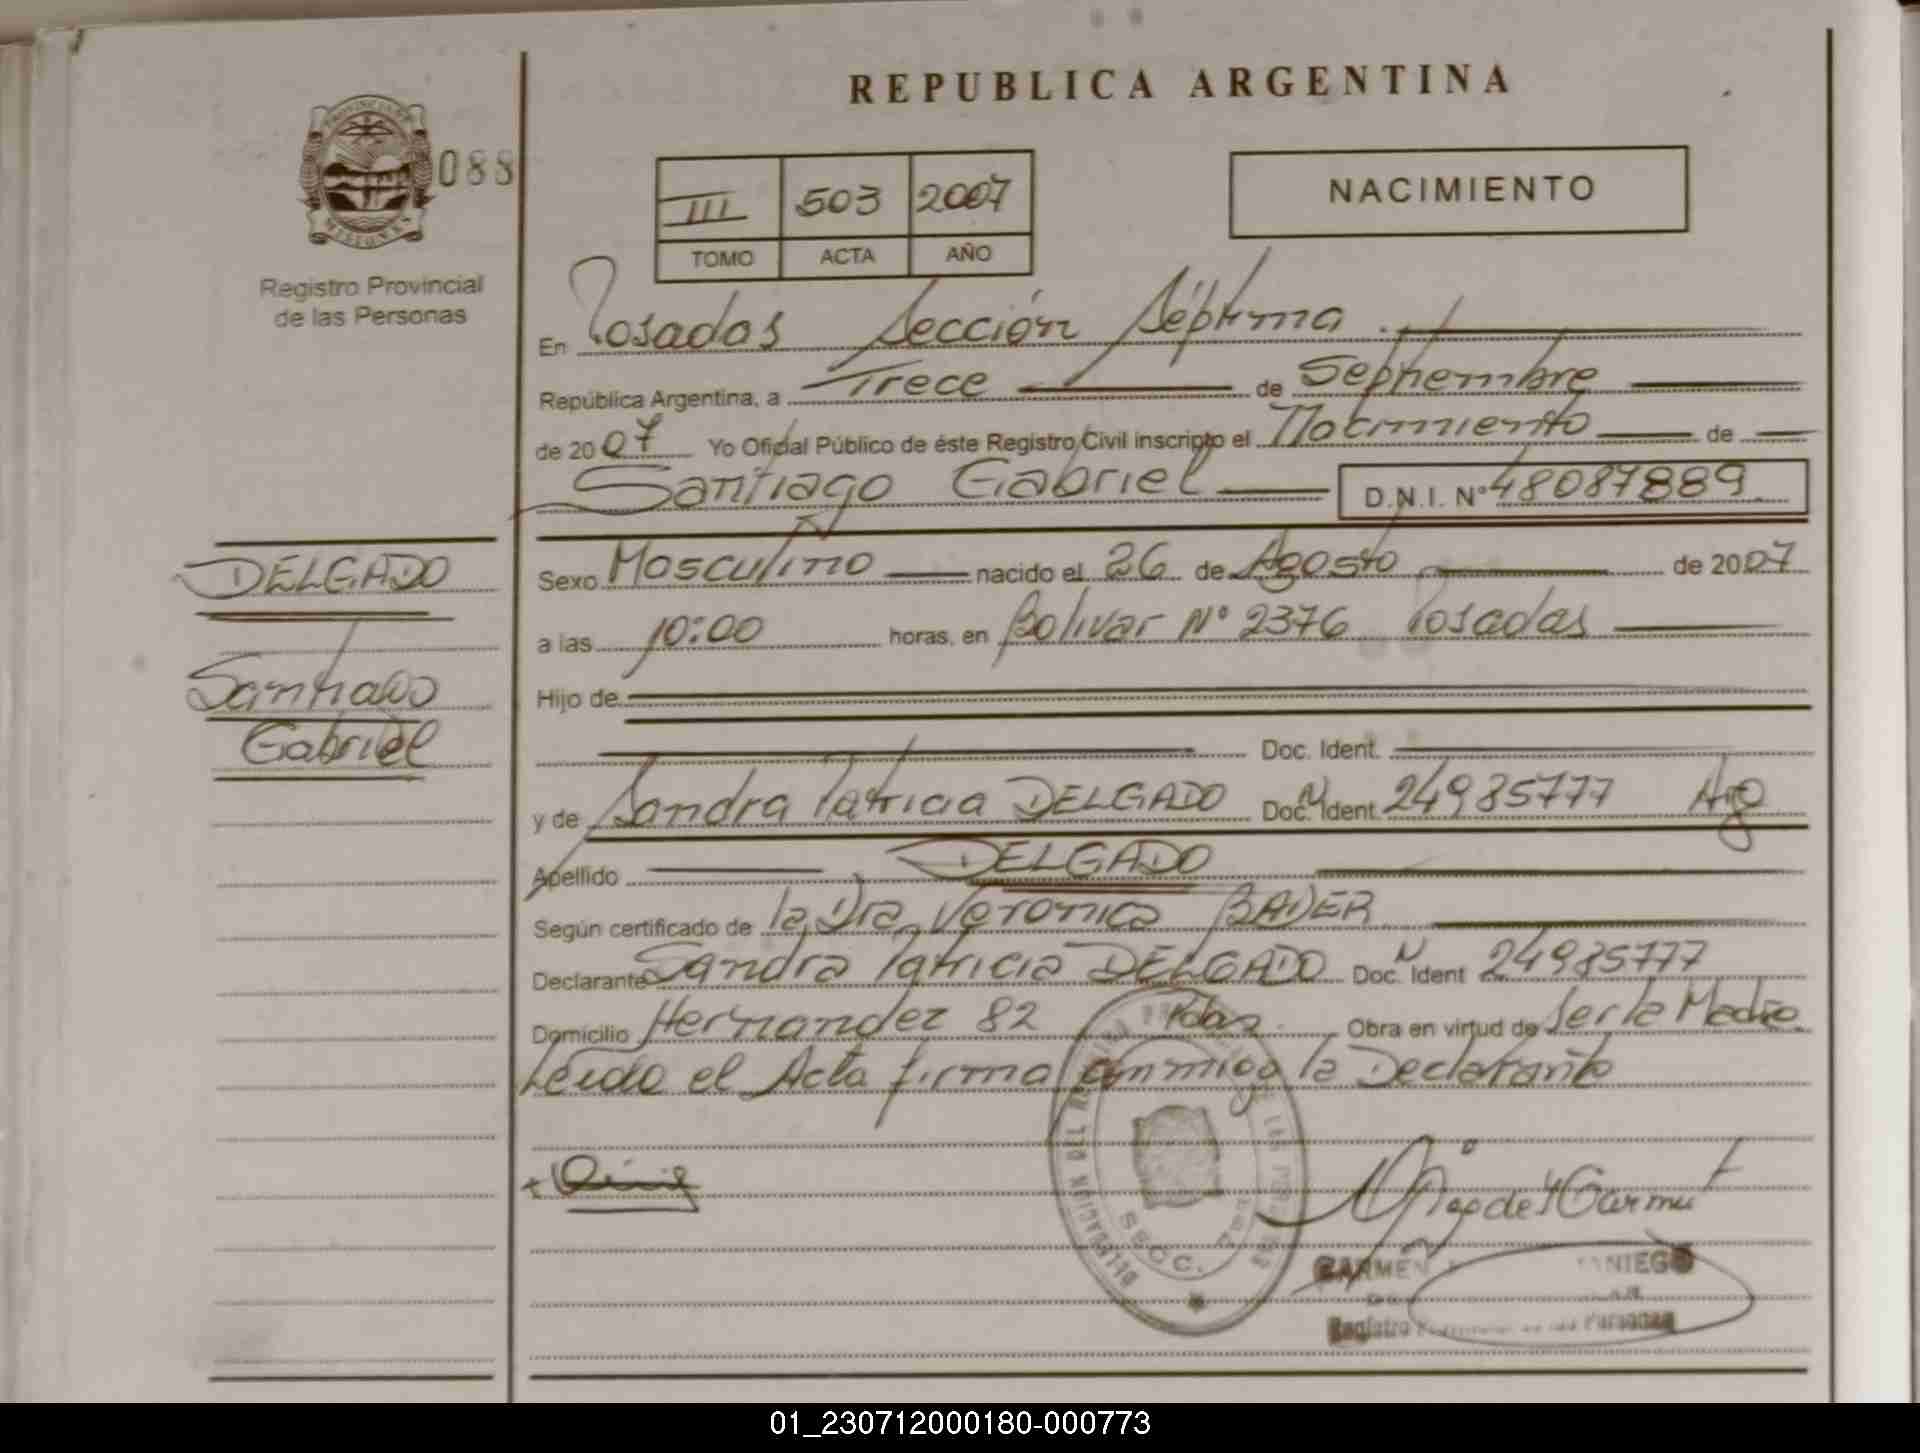 REPUBLICA ARGENTINA
PROVINCIA DE
MISIONES
088
Registro Provincial
de las Personas
III 503 2007
TOMO ACTA AÑO
NACIMIENTO
En Posadas Sección Séptima.
República Argentina, a Trece de Septiembre
de 2007 Yo Oficial Público de éste Registro Civil inscripto el Nacimiento de
Santiago Gabriel D.N.I. Nº 48087889
DELGADO
Santiago
Gabriel
Sexo Masculino nacido el 26 de Agosto de 2007
a las 10:00 horas, en Bolivar Nº 2376 Posadas
Hijo de
Doc. Ident.
y de Sandra Patricia DELGADO Doc. N Ident. 24985777 Arg
Apellido DELGADO
Según certificado de la Dra. Veronica BADER
Declarante Sandra Patricia DELGADO Doc. N Ident 24985777
Domicilio Hernandez 82 Pdas. Obra en virtud de ser la Madre.
Leido el Acta firma conmigo la Declarante
DELEGACION DEL
SECC.
CARMEN
Registro Personas
01_230712000180-000773